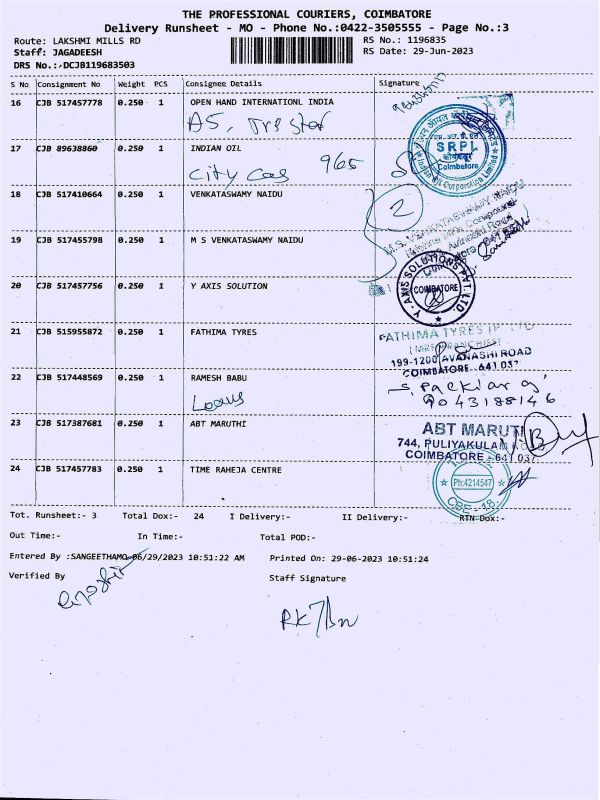 THE PROFESSIONAL COURIERS, COIMBATORE
Delivery Runsheet - MO - Phone No.:0422-3505555 - Page No.:3
Route: LAKSHMI MILLS RD
RS No.: 1196835
Staff: JAGADEESH
RS Date: 29-Jun-2023
DRS No.:DCJB119683503
S No Consignment No Weight PCS Consignee Details Signature
16 CJB 517457778 0.250 1 OPEN HAND INTERNATIONL INDIA
17 CJB 89638860 0.250 1 INDIAN OIL
City Gas 965
SRPL
Coimbatore
Indian Oil Corporation Limited
18 CJB 517410664 0.250 1 VENKATASWAMY NAIDU
2
M.S. VENKATASWAMY NAIDU
19 CJB 517455798 0.250 1 M S VENKATASWAMY NAIDU
20 CJB 517457756 0.250 1 Y AXIS SOLUTION
Y. AXIS SOLUTIONS PVT. LTD.
COIMBATORE
21 CJB 515955872 0.250 1 FATHIMA TYRES
FATHIMA TYRES
199-1200 AVANASHI ROAD
COIMBATORE 641 037
22 CJB 517448569 0.250 1 RAMESH BABU
9043188146
23 CJB 517387681 0.250 1 ABT MARUTHI
ABT MARUTI
744, PULIYAKULAM
COIMBATORE - 641 037
24 CJB 517457783 0.250 1 TIME RAHEJA CENTRE
Ph:4214547
CBE - 18
Tot. Runsheet:- 3 Total Dox:- 24 I Delivery:- II Delivery:- RTN Dox:-
Out Time:- In Time:- Total POD:-
Entered By :SANGEETHAMO 06/29/2023 10:51:22 AM Printed On: 29-06-2023 10:51:24
Verified By Staff Signature